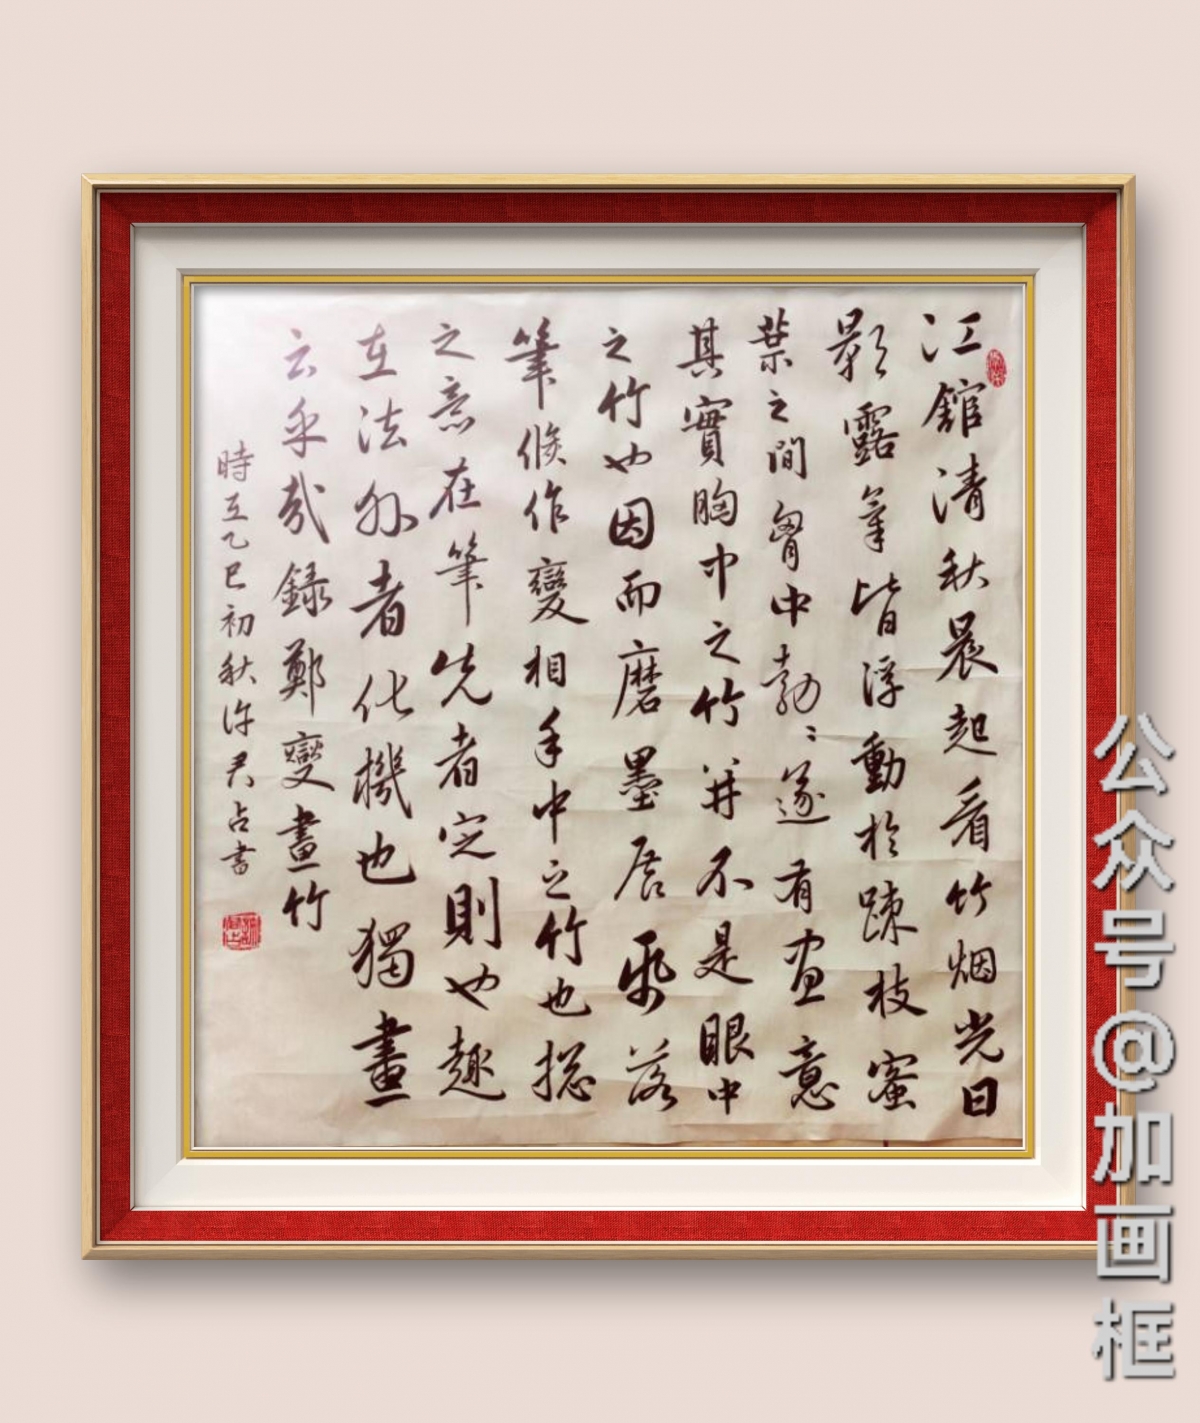 江舘清秋晨起看竹烟光日
影露氣皆浮動於疎枝蜜
葉之間胷中勃〻遂有画意
其實胸中之竹并不是眼中
之竹也因而磨墨展帋落
筆倏作變相手中之竹也総
之意在筆先者定則也趣
在法外者化機也獨畫
云乎哉録鄭燮畫竹
時在乙巳初秋許君占書
公众号@加画框